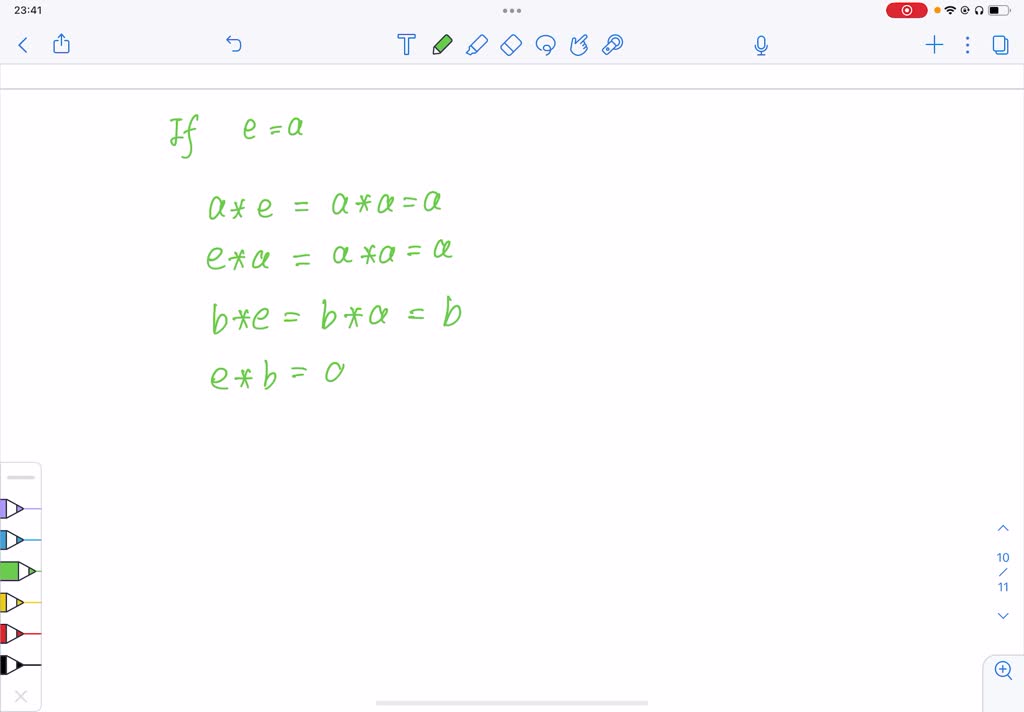 23:41
If e = a
a * e = a * a = a
e * a = a * a = a
b * e = b * a = b
e * b =
10
/
11